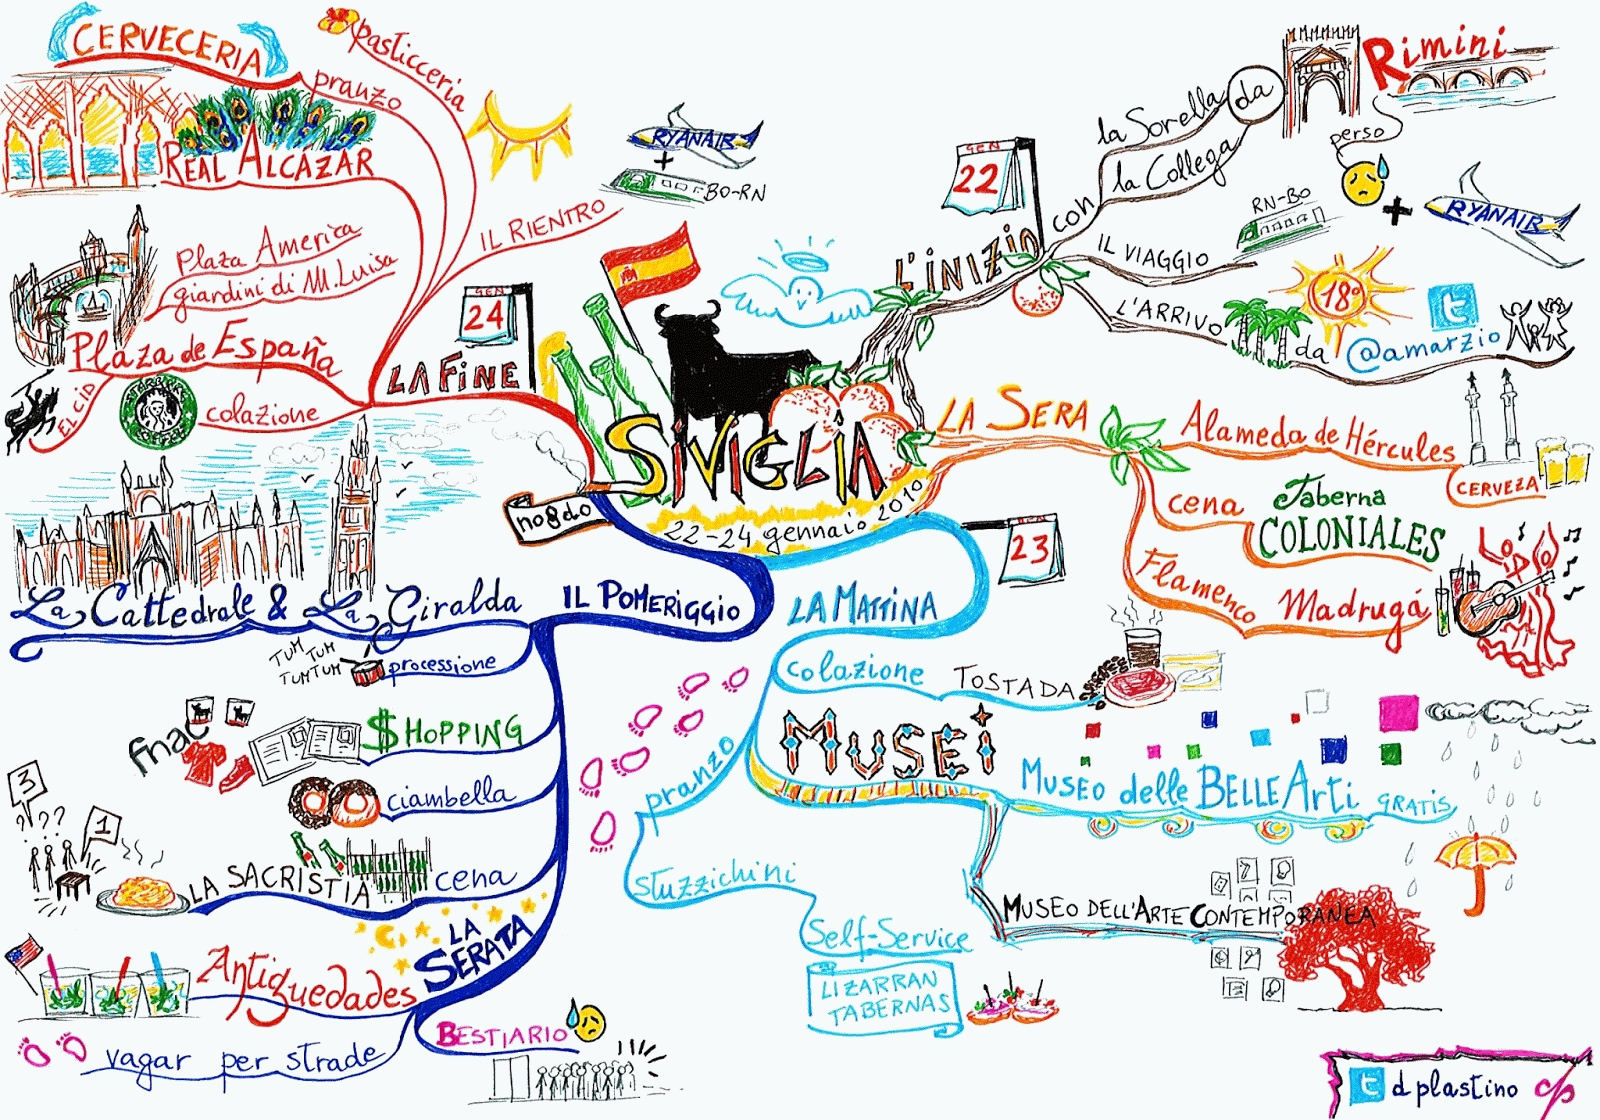 SiViGLiA
22-24 gennaio 2010
no8do
L'iNiZiO
GEN
22
con
la Sorella
la Collega
da
Rimini
perso
IL VIAGGIO
RN-BO
+
RYANAIR
L'ARRIVO
18°
da @amarzio
LA SERA
Alameda de Hércules
CERVEZA
cena
Taberna
COLONIALES
Flamenco
Madrugá
GEN
23
LA MATTINA
colazione
TOSTADA
MUSEi
MUSEO delle BELLE Arti
GRATIS
MUSEO DELL'ARTE CONTEMPORANEA
pranzo
stuzzichini
Self-Service
LIZARRAN
TABERNAS
IL POMERIGGIO
La Cattedrale & La Giralda
processione
TUM
TUM
TUMTUM
$HOPPING
fnac
ciambella
cena
LA SACRISTIA
3
???
1
LA
SERATA
Antiquedades
BESTIARIO
vagar per strade
GEN
24
LA FiNE
colazione
STARBUCKS
COFFEE
Plaza de España
EL CID
Plaza America
giardini di M. Luisa
REAL ALCÁZAR
pranzo
CERVECERIA
pasticceria
IL RIENTRO
RYANAIR
+
BO-RN
d plastino dp